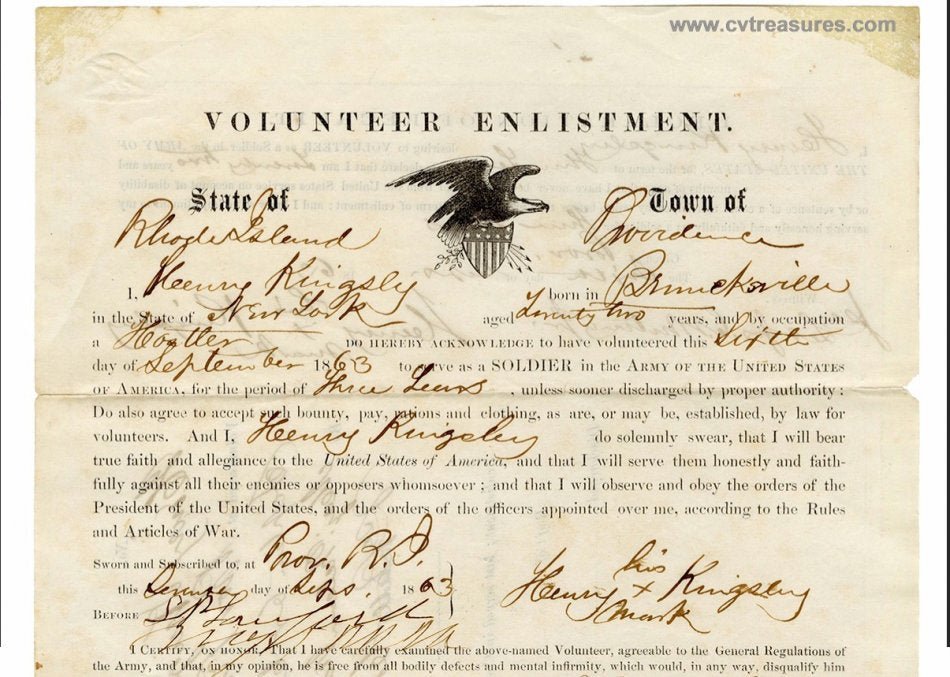 www.cvtreasures.com
VOLUNTEER ENLISTMENT.
State of Town of
Rhode Island Providence
I, Henry Kingsly born in
in the State of New York aged Twenty two years, and by occupation
a DO HEREBY ACKNOWLEDGE to have volunteered this Sixth
day of September 1863 to serve as a SOLDIER in the ARMY OF THE UNITED STATES
OF AMERICA, for the period of Three Years, unless sooner discharged by proper authority:
Do also agree to accept such bounty, pay, rations and clothing, as are, or may be, established, by law for
volunteers. And I, Henry Kingsley do solemnly swear, that I will bear
true faith and allegiance to the United States of America, and that I will serve them honestly and faith-
fully against all their enemies or opposers whomsoever; and that I will observe and obey the orders of the
President of the United States, and the orders of the officers appointed over me, according to the Rules
and Articles of War.
Sworn and Subscribed to, at Prov. R.I.
this day of Sept. 1863
his
Henry x Kingsley
mark
BEFORE
I CERTIFY, ON HONOR, That I have carefully examined the above-named Volunteer, agreeable to the General Regulations of
the Army, and that, in my opinion, he is free from all bodily defects and mental infirmity, which would, in any way, disqualify him